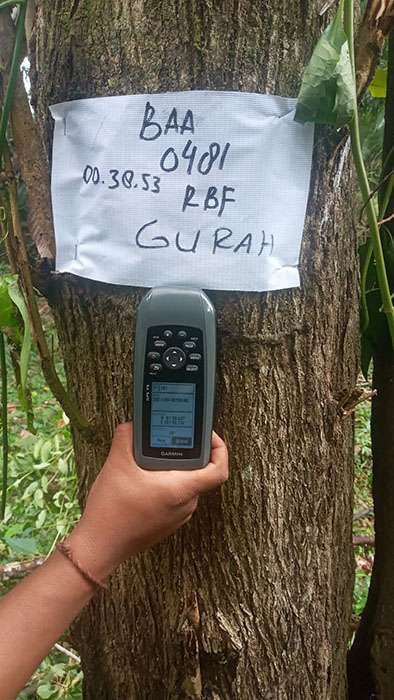 BAA
0481
00.38.53
RBF
GURAH
GARMIN